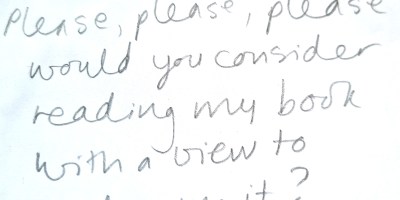 Please, please, please
would you consider
reading my book
with a view to
it?